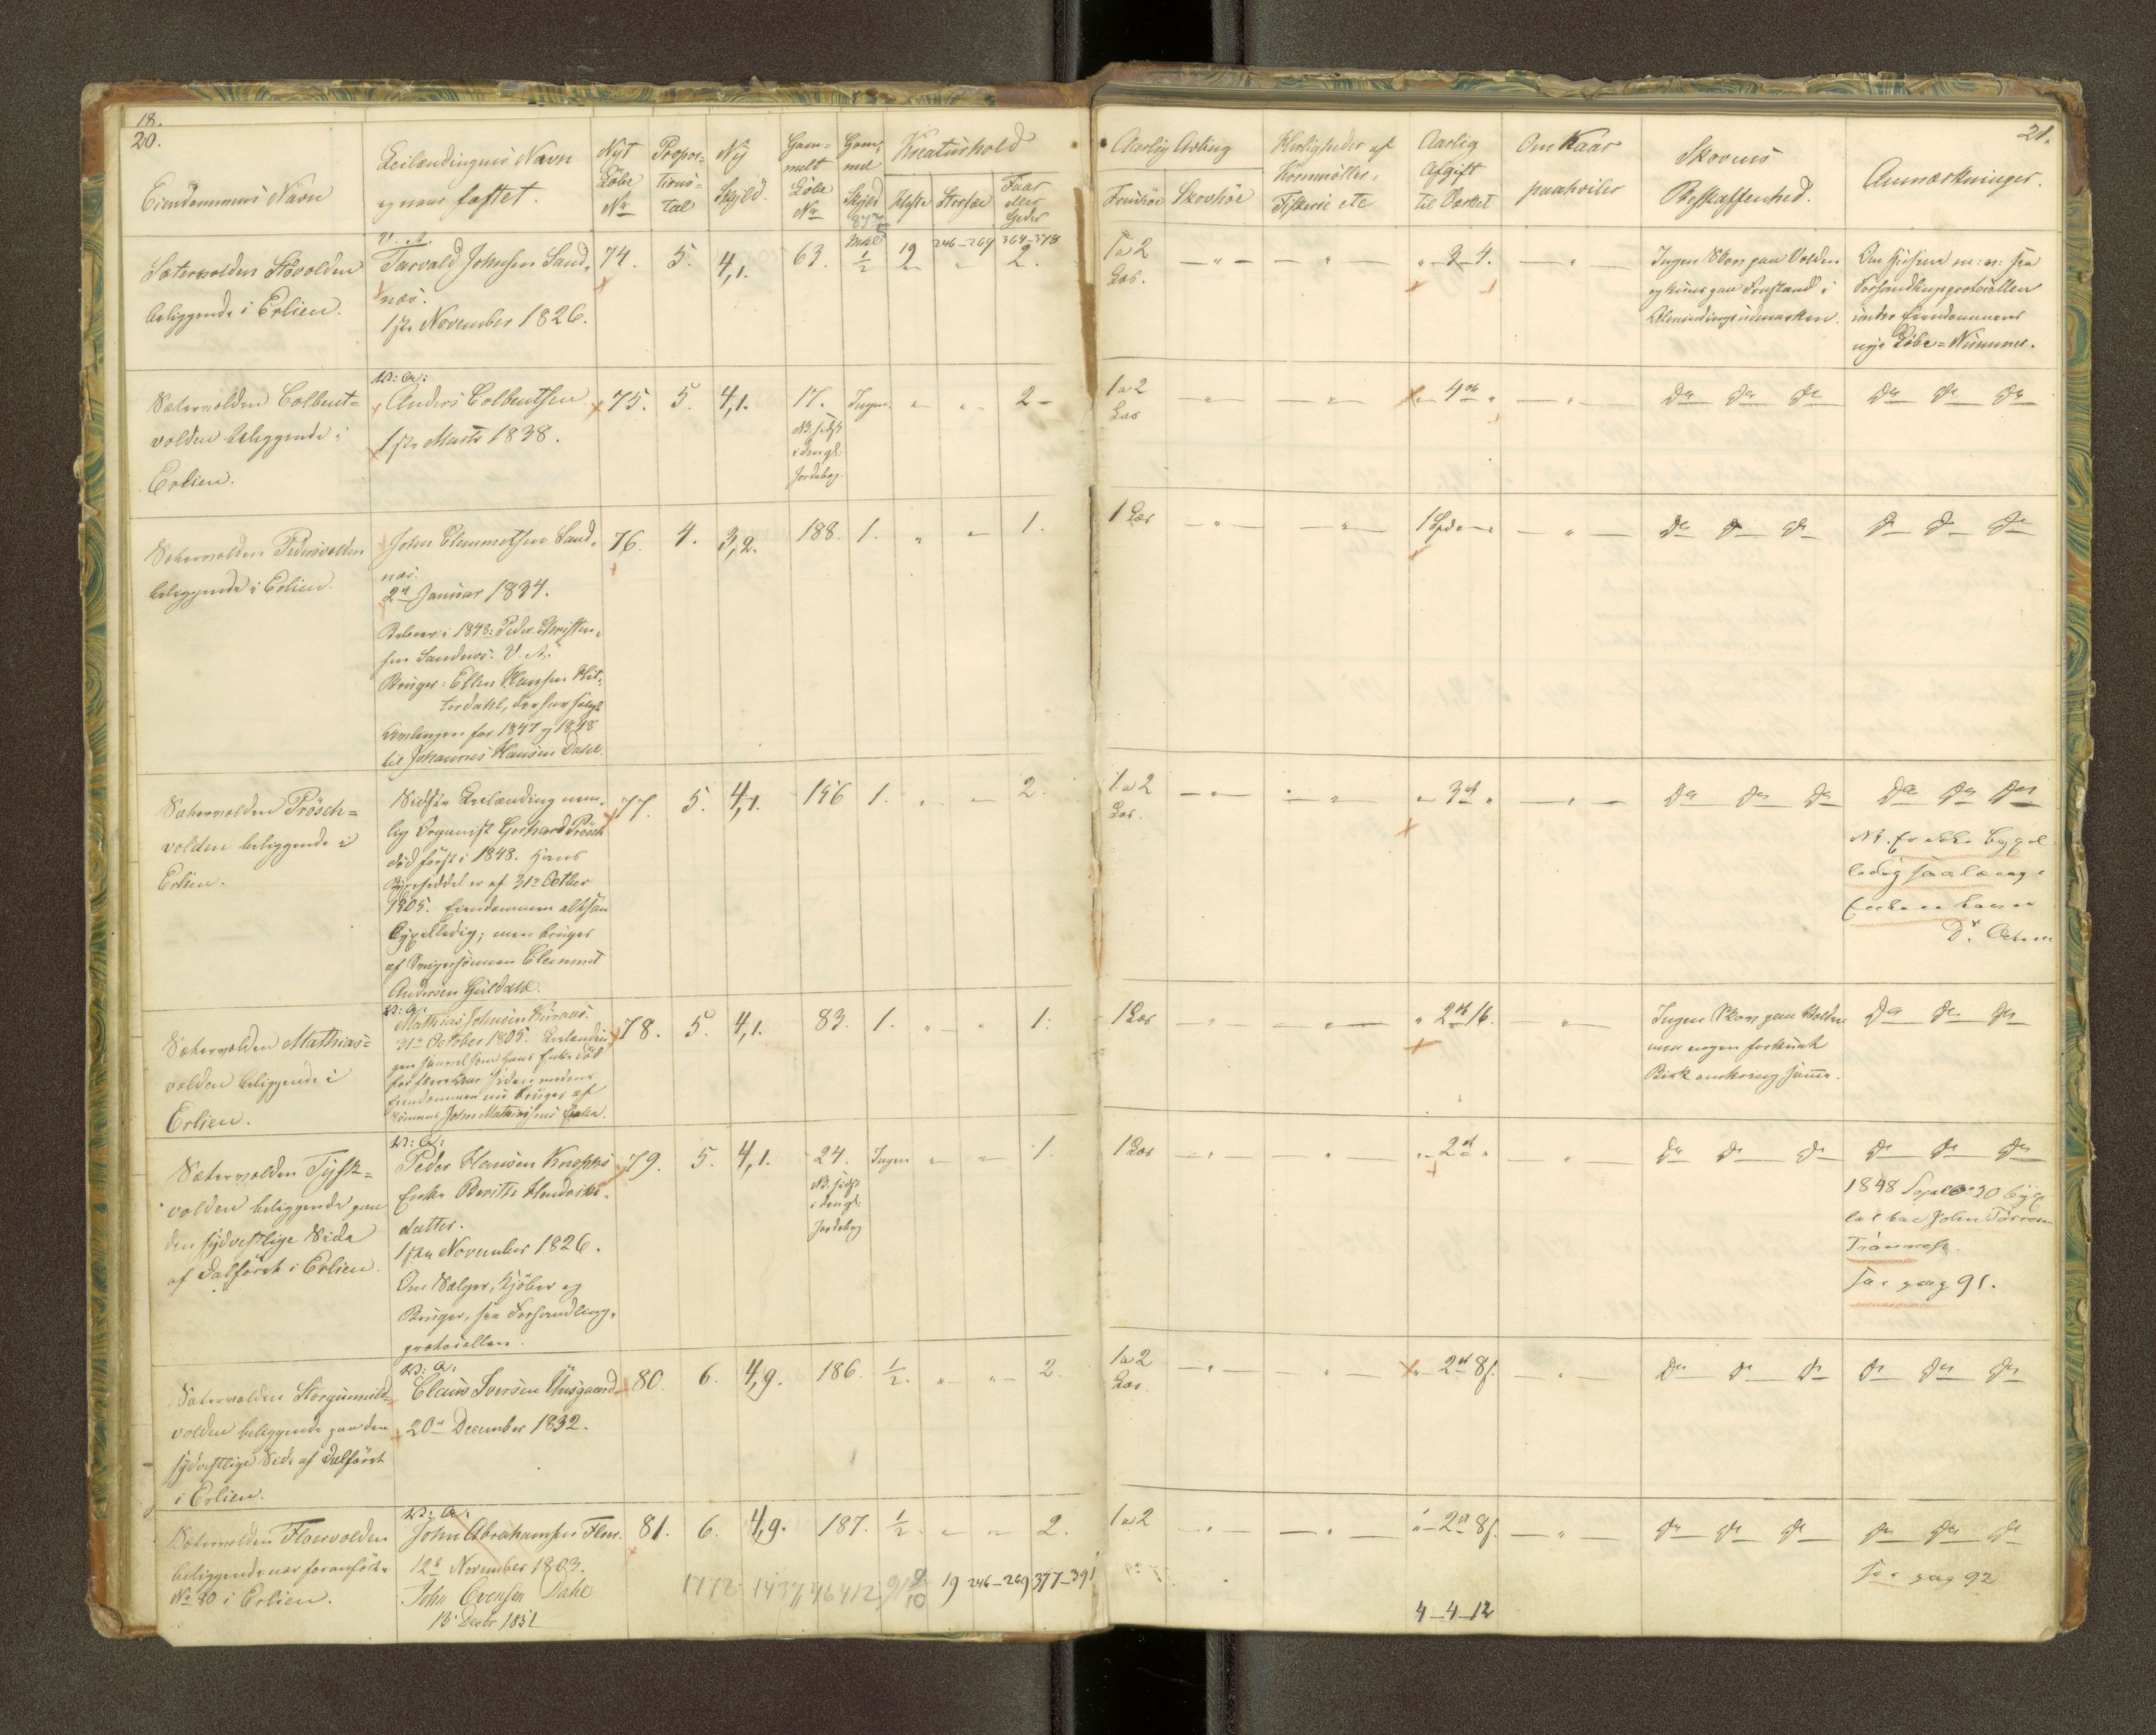 18.
20.
Eiendommens Navn
Leilændingens Navn
og naar fæstet.
Nyt
Löbe
No
Propor=
tions=
tal
Ny
Skyld.
Gam=
melt
Löbe
No
Gam=
mel
Skyld
Kreaturhold
Heste Storfæ Faar
eller
Geder
Sætervolden Stövolden
beliggende i Erlien.
Tarvald Johnsen Sand=
næs.
1ste November 1826.
74. 5. 4,1. 63. 1/2 19 246-269 364-378
2.
Sætervolden Colbent=
volden beliggende i
Erlien.
W: A:
Anders Colbentsen
1ste Marts 1838.
75. 5. 4,1. 17. Ingen " " 2-
NB. sidst
i den gl:
Jordebog.
Sætervolden Pedersvolden
beliggende i Erlien.
John Clemmetsen Sand=
næs.
2d Januar 1834.
Beboer i 1848: Peder Christen=
sen Sandnæs: V. A.
Bruger: Ellen Hansen
dahl,
Avlingen for 1847 og 1848
til Johannes Hansen Dahl
76. 4. 3,2. 188. 1. " " 1.
Sætervolden Prösch=
volden beliggende i
Erlien.
Sidste Leilænding nem=
lig Organist Gerhard Prösch
död först i 1848. Hans
Bygselseddel er af 31te Octber
1805. Eiendommen altsaa
bygselledig; men bruges
af Svigersönnen Clemmet
Andersen Guldahl.
77. 5. 4,1. 156 1. " " 2.
Sætervolden Mathias=
volden beliggende i
Erlien.
W: A:
Mathias Johnsen Kuraas.
31te October 1805. Leilændin=
gen saavel som hans Enke död
for flere Aar siden, medens
Eiendommen nu bruges af
Sönnens John Mathiesens Enke.
78. 5. 4,1. 83. 1. " " 1.
Sætervolden Tyfst=
volden beliggende paa
den sydvestlige Side
af Dalföret i Erlien.
W: A:
Peder Hansen Knophs
Enke Berithe Hendriks=
datter.
1ste November 1826.
Om Sælger, Kjöber og
Bruger, see Forhandlings=
protocollen.
79. 5. 4,1. 24. Ingen " " 1.
NB. sidst
i den gl:
Jordebog
Sætervolden Storgunnild=
volden beliggende paa den
sydvestlige Side af Dalföret
i Erlien.
W: A:
Claus Iversen Husgaard
20de December 1832.
80. 6. 4,9. 186. 1/2. " " 2.
Sætervolden Floervolden
beliggende nær foranförte
No 80 i Erlien.
W: A:
John Abrahamsen Floer.
12te November 1803.
John Evensen Dahl
13 Decbr 1851
81. 6. 4,9. 187. 1/2. " " 2.
19 246-269 377-391
21.
Aarlig Avling
Fruehöe Skovhöe
Herligheder af
Kornmöller,
Fiskerie etc
Aarlig
Afgift
til Værket
Om Kaar
paahviler
Skovens
Beskaffenhed.
Anmærkninger.
1 a 2
Læs.
" 3-4.
Ingen Skov paa Volden
og kuns paa Frastand i
Almindingsudmarken.
Om Huusene m: v: see
Forhandlingsprotocollen
under Eiendommens
nye Löbe=Nummer.
1 a 2
Læs
4 "
Do Do Do Do Do Do
1 Læs
1 Spd
Do Do Do Do Do Do
1 a 2
Læs.
3 "
Do Do Do Do Do Do
NB. Er ikke bygsel
ledig saalænge
Enken lever
1 Læs
" 2 16.
Ingen Skov paa Volden
men nogen forkrænt
Birk omkring samme.
Do Do Do
1 Læs
2 "
Do Do Do Do Do Do
1848 Septbr 30 byg
John
Tronnes.
Se pag 91.
1 a 2
Læs.
2 8 s.
Do Do Do Do Do Do
1 a 2
2 8 s.
Do Do Do Do Do Do
Se pag 92
4-4-12